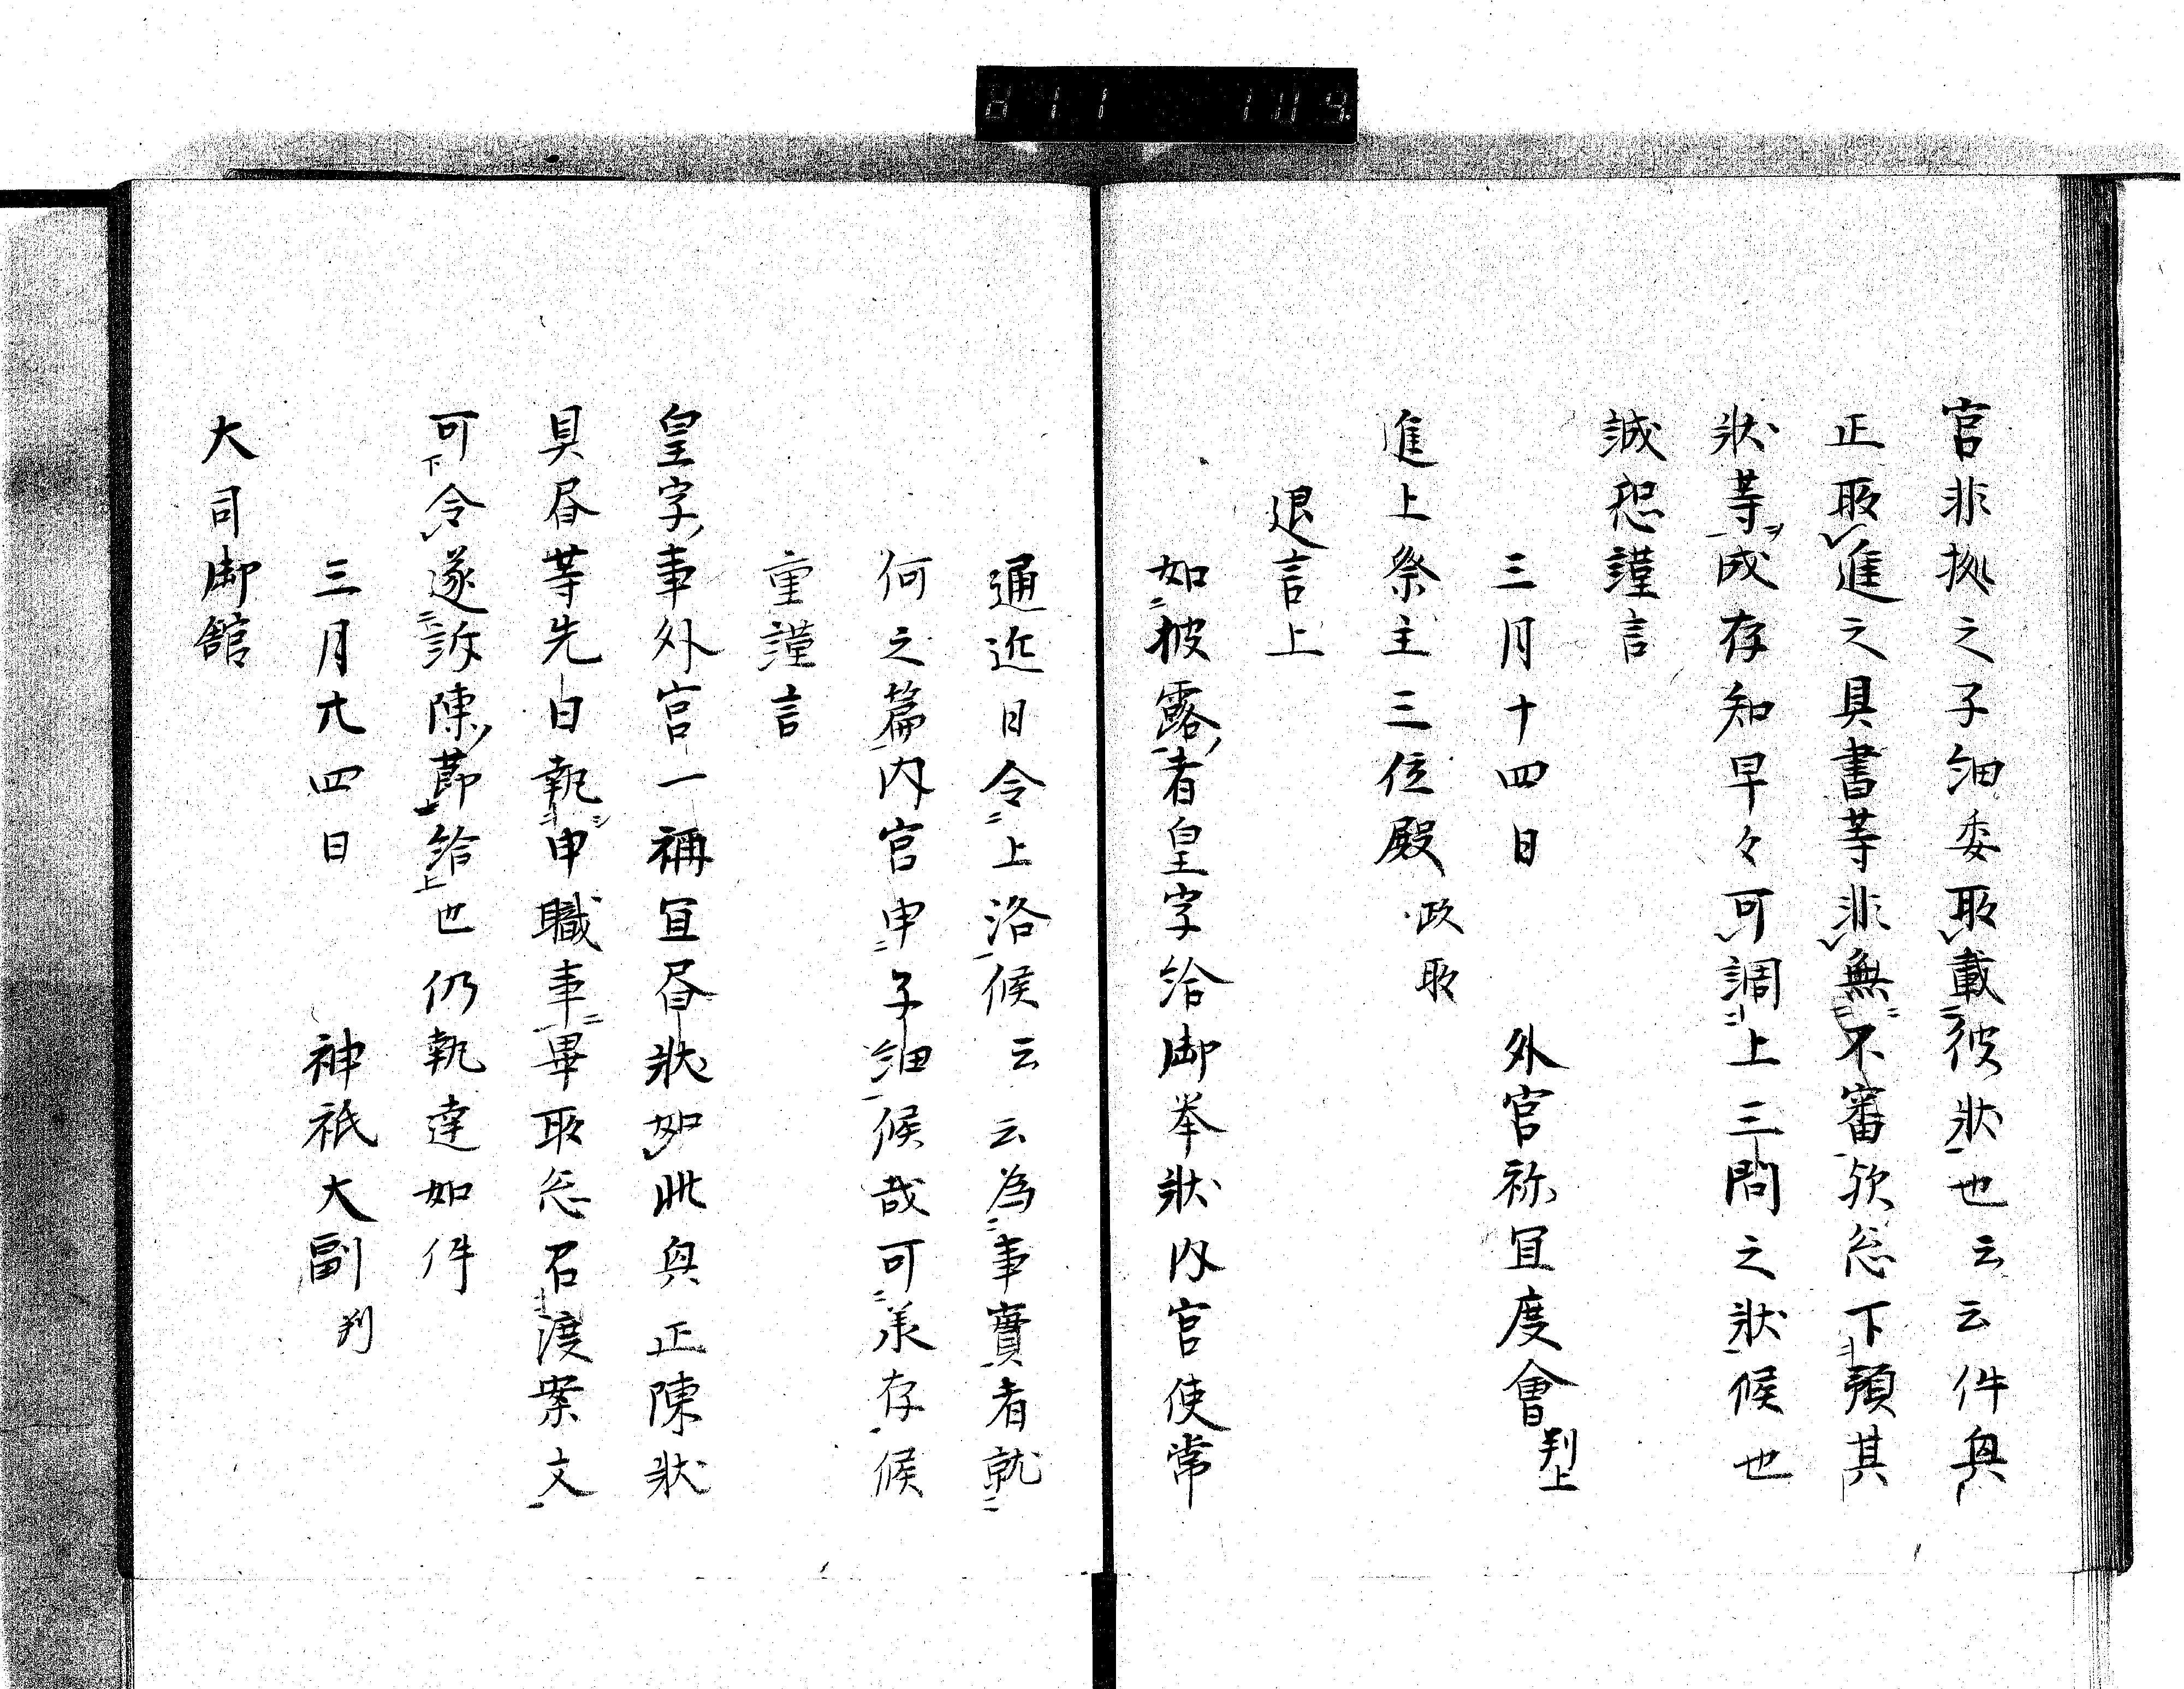 官非拠之子細委取載彼状也云云件與
正取進之具書等非無不審歟忩下預其
状等成存知早々可調上三問之状候也
誠恐謹言
三月十四日　外宮祢宜度會判上
進上祭主三位殿政所
退言上
如披露者皇字給御挙状内宮使常
通近日令上洛候云云為事實者就
何之篇内官申子細候哉可承存候
重謹言
皇字事外宮一禰宜昼状如此具正陳状
具昼等先日執申職事畢取忩召渡案文
可令遂訴陳節給也仍執達如件
三月廿四日　神祇大副判
大司御館